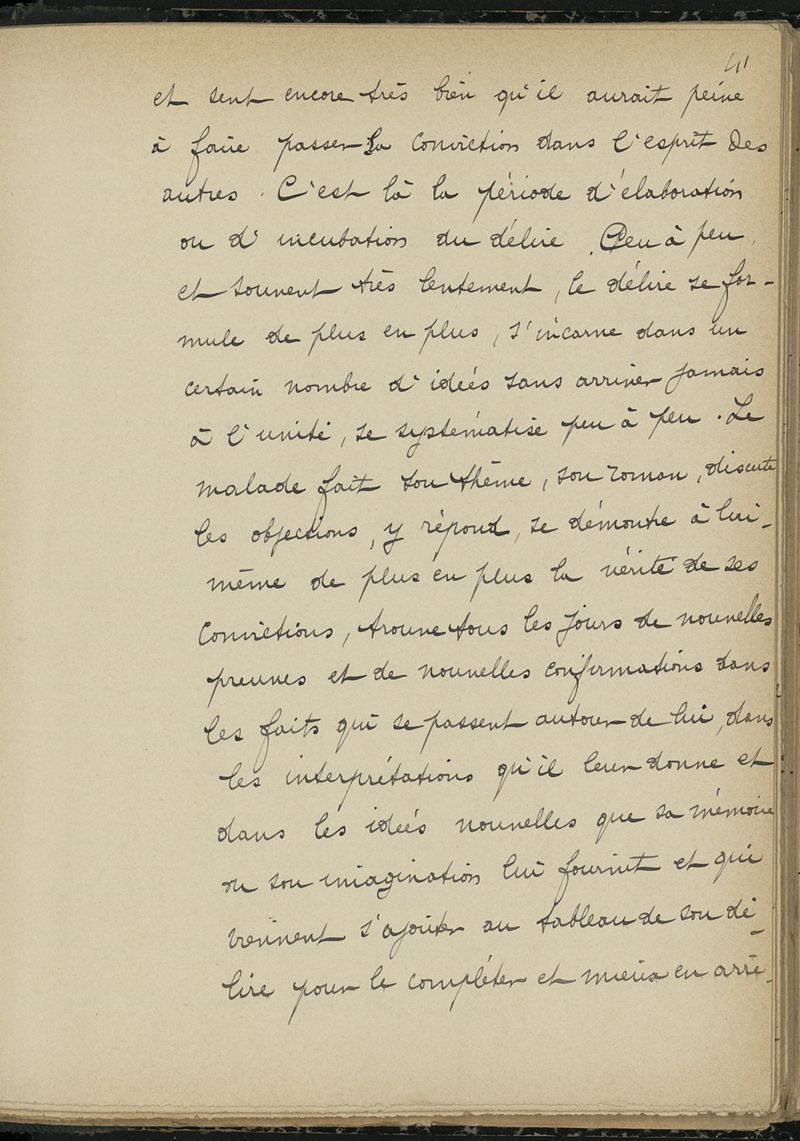 41
et sent encore très bien qu'il aurait peine
à faire passer sa conviction dans l'esprit des
autres. C'est là la période d'élaboration
ou d'incubation du délire. Peu à peu,
et souvent très lentement, le délire se for-
mule de plus en plus, s'incarne dans un
certain nombre d'idées sans arriver jamais
à l'unité, se systématise peu à peu. Le
malade fait son thême, son roman, discute
les objections, y répond, se démontre à lui-
même de plus en plus la vérité de ses
convictions, trouve tous les jours de nouvelles
preuves et de nouvelles confirmations dans
les faits qui se passent autour de lui, dans
les interprétations qu'il leur donne et
dans les idées nouvelles que sa mémoire
ou son imagination lui fournit et qui
viennent s'ajouter au tableau de son dé-
lire pour le compléter et mieux en arrê-